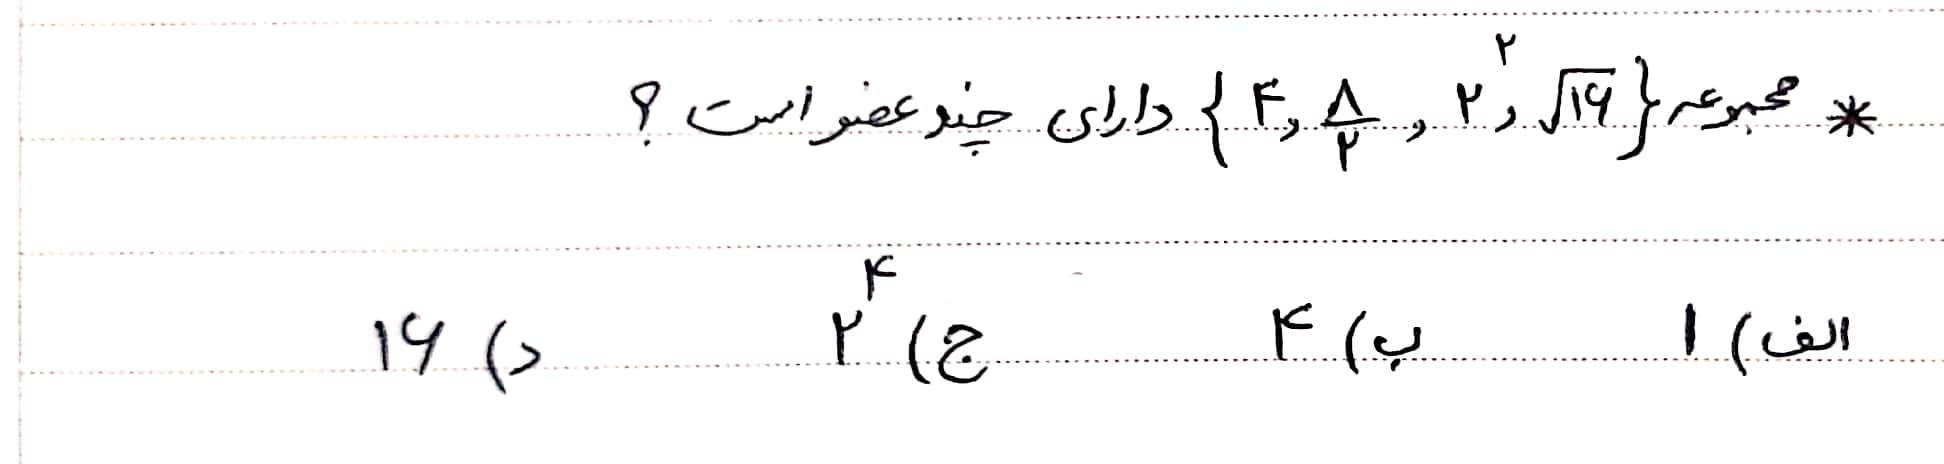 * مجموعه {√۱۶ , ۲^۲ , ۸/۲ , ۴} دارای چند عضو است ؟
الف) ۱ ب) ۴ ج) ۲^۴ د) ۱۶